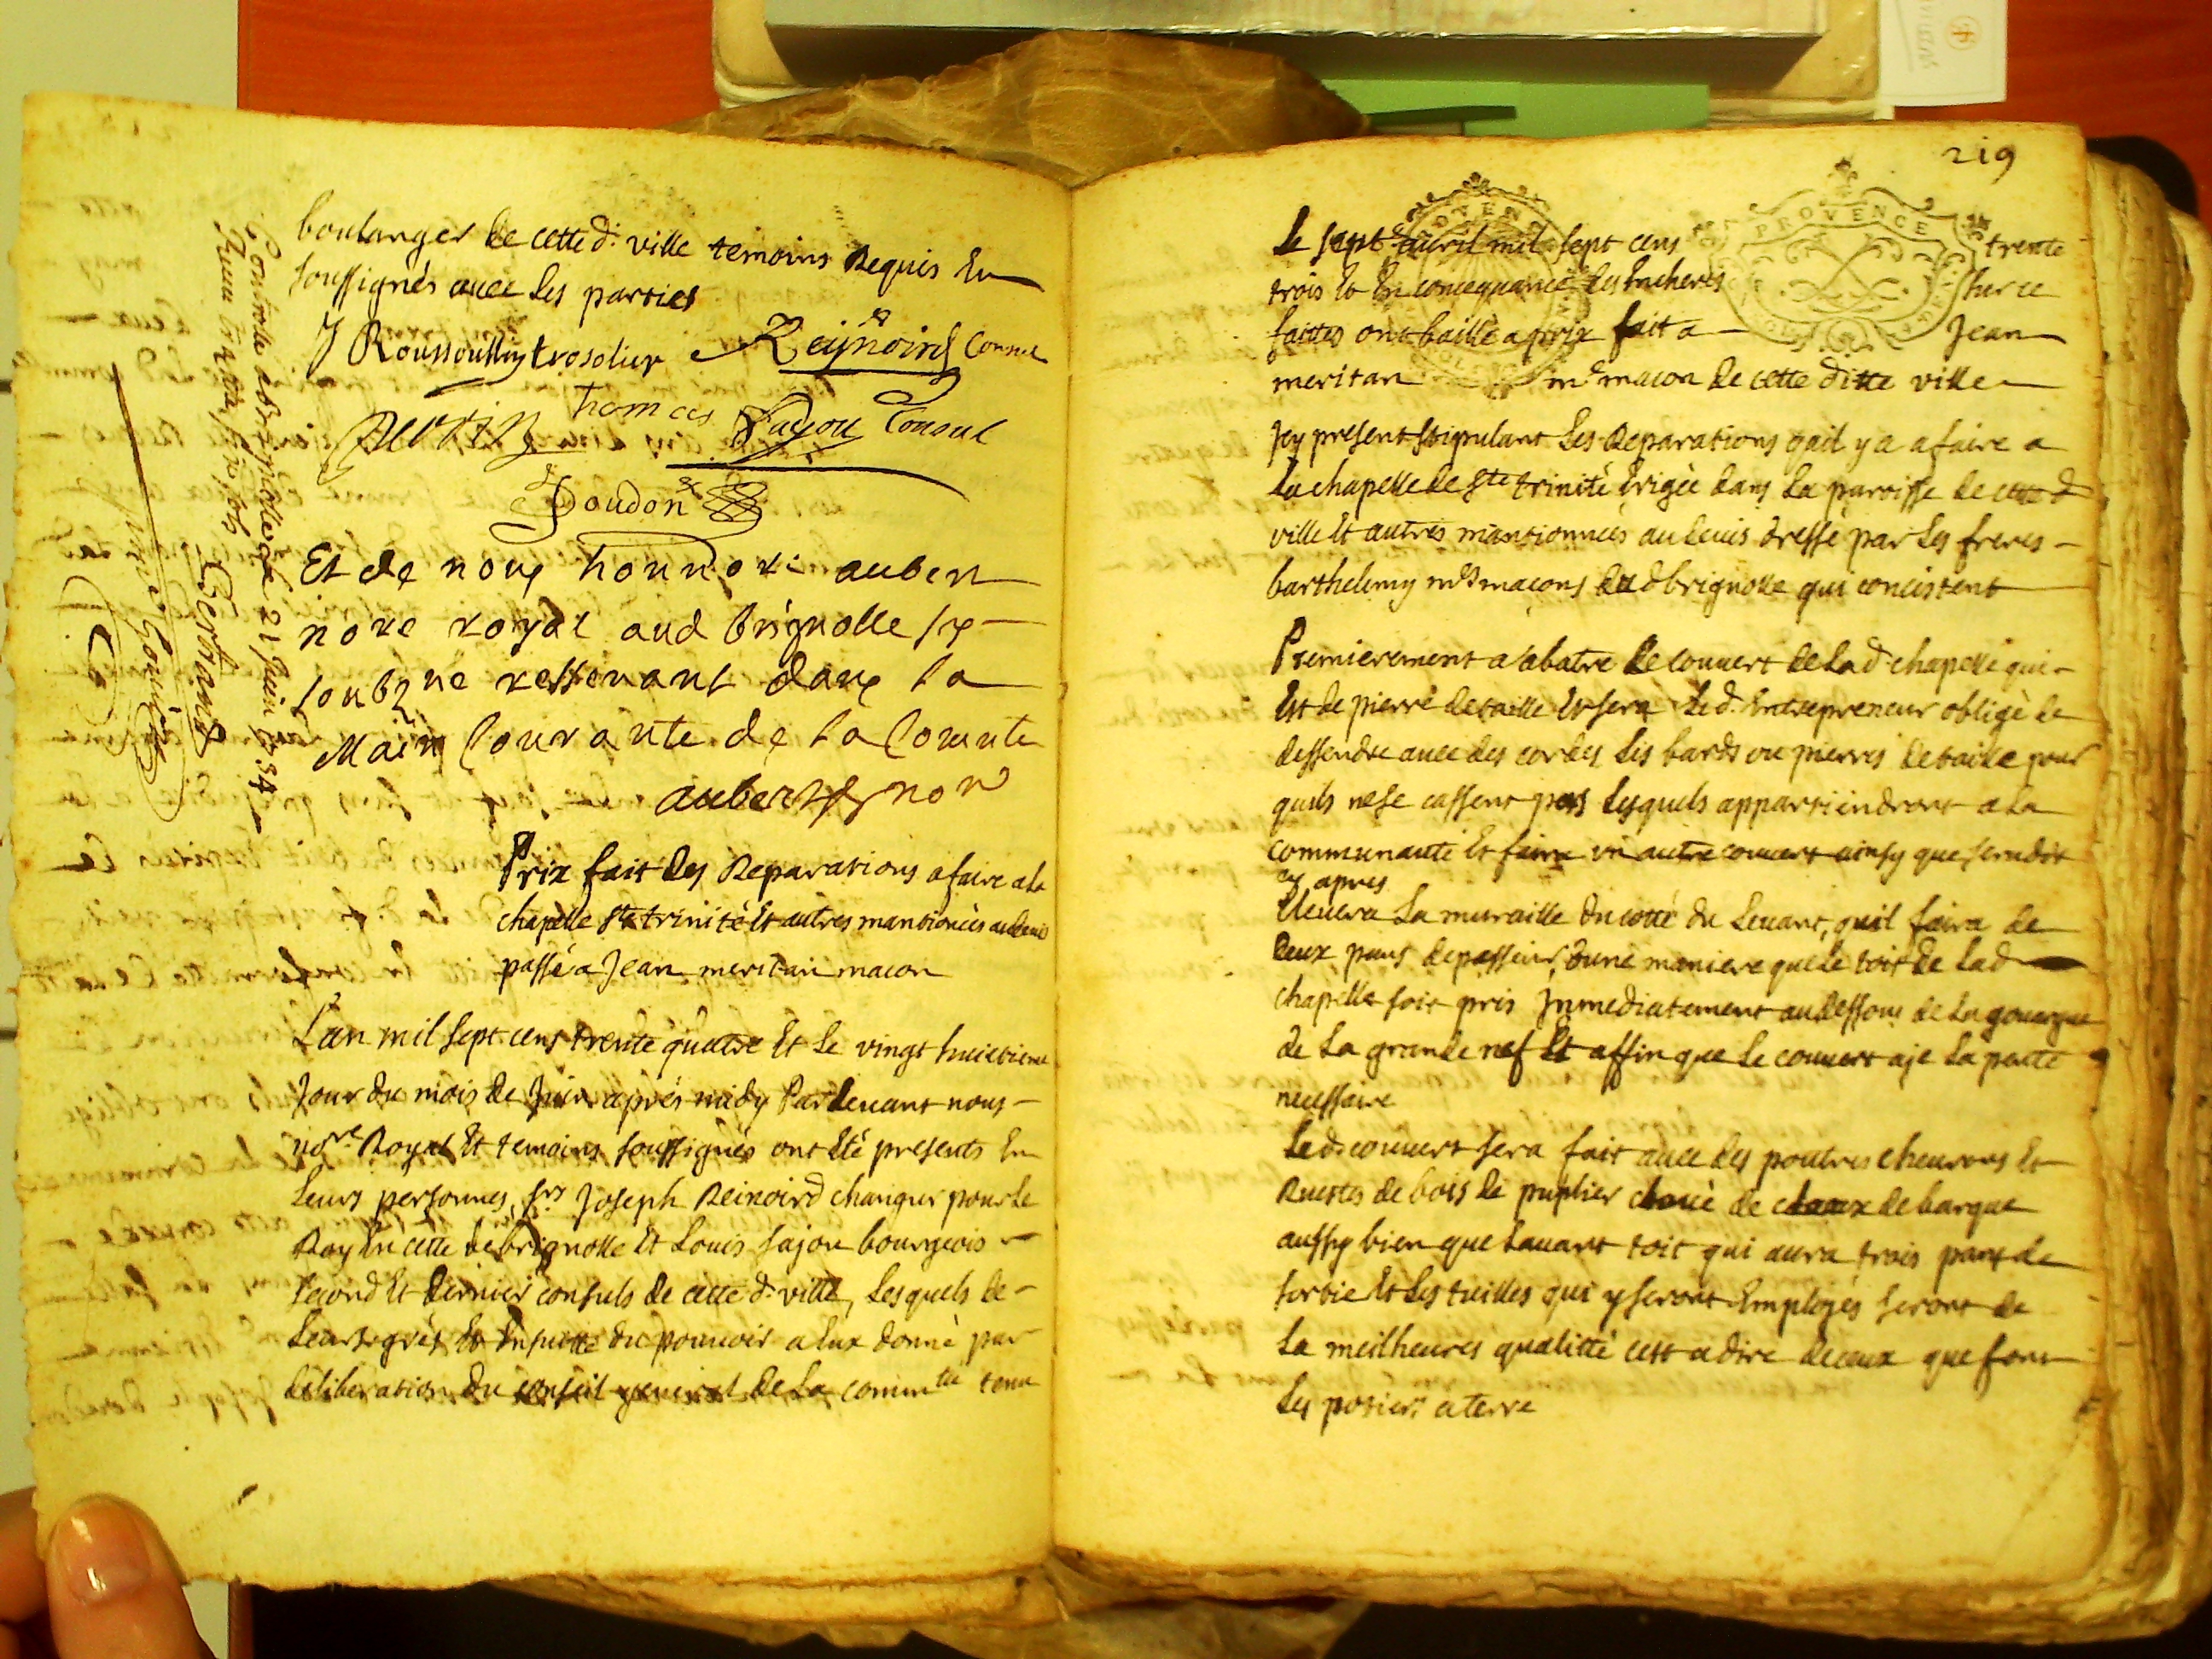 boulanger de cette d. ville temoins Requis Eu
soussignés avec les parties
J Roussoulliy Reijnoird Consul
Thomas fajou Consul
Doudon
Et de nous honnoré aubert
nore royal aud brignolle
soubzne dans la
Main Courante de la Comunte
aubert nore
Controllé a brignolle le 21 Juin 1734
Bertrand
Prix fait des Reparations a faire a la
chapelle Ste trinité Et autres mantionées au devis
passé a Jean meritan macon
L'an mil sept cens trente quatre Et le vingt huictieme
Jour du mois de Juin aprés midy Pardevant nous
nore Royal Et temoins soussignés ont Eté presents En
Leurs personnes, srs Joseph Reinoird changur pour le
Roy En cette de brignolle Et Louis fajou bourgeois
second Et dernier consuls de cette d. ville, Lesquels de
Leurs grés Et Ensuitte du pouvoir a Eux donné par
deliberation du conseil general de La commté tenu
219
PROVENCE
Le sept avril mil sept cens trente
trois Et En concequance des Encheres sur ce
faittes ont baillé a prix fait a Jean
meritan me macon de cette ditte ville
Icy present stipulant Les Reparations quil y a a faire a
La chapelle de Ste trinité Erigée dans La paroisse de cette d
ville Et autres mantionnées au devis dressé par Les freres
barthelemy mes maçons dud brignolle qui concistent
Premierement a abatre Le couvert de Lad. chapelle qui
Est de pierre de taille Et sera Le d. Entrepreneur obligé de
dessendre avec des cordes Les bards ou pierres de taille pour
quils ne se cassent pas Lesquels appartiendront a La
communauté Et faire un autre couvert ainsy que sera dit
cy apres
Elevera La muraille du cotté du Levant, quil faira de
deux pans depasseur, dune maniere que Le toit de Lad
chapelle soit pris Jmmediatement au dessous de La gouergue
de La grande nef Et affin que Le couvert aje La pante
necessaire
Led. couvert sera fait avec des poutres chevrons Et
Ruestes de bois de puplier cloué de cloux de barque
aussy bien que Lavant toit qui aura trois pans de
sortie Et Les tuilles qui y seront Employés seront de
La meilheures qualitté cest a dire de ceux que font
Les potiers a terre